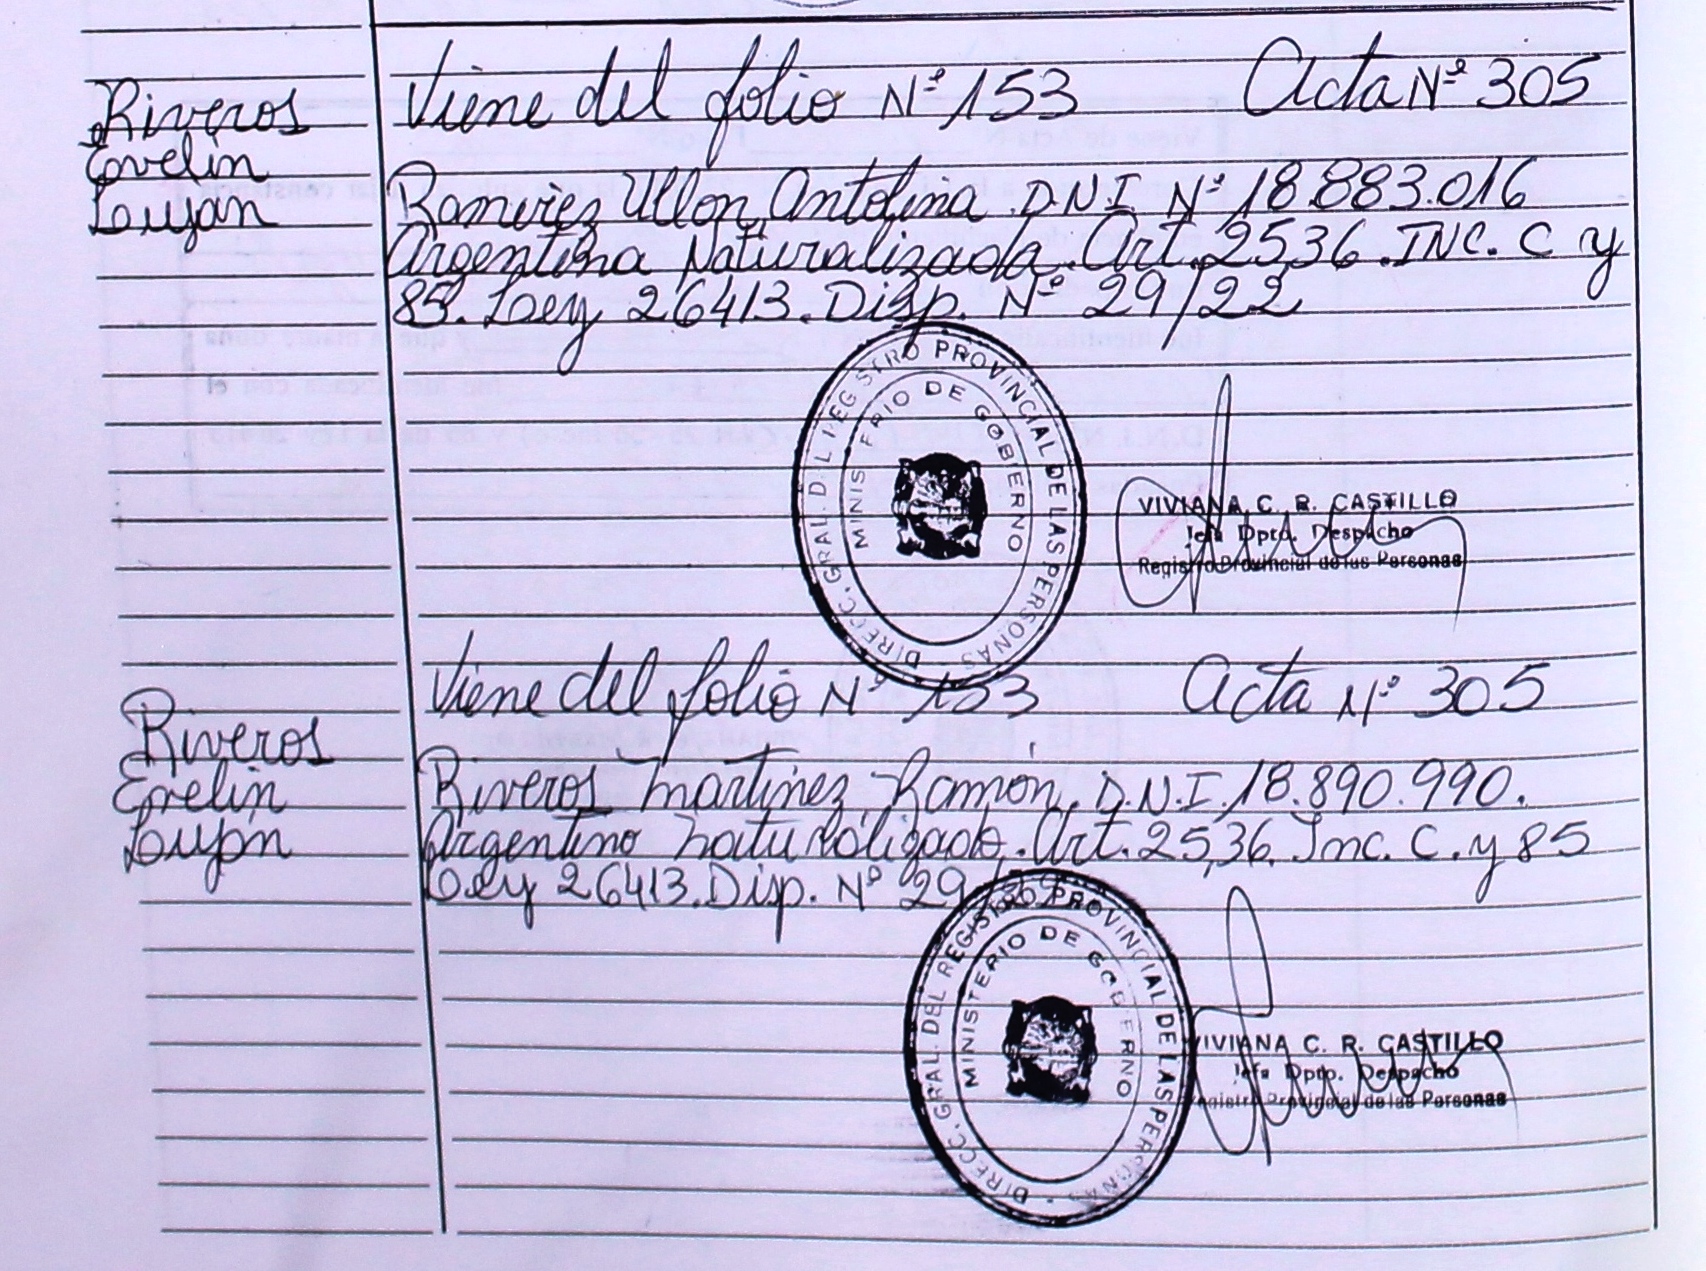 Riveros
Evelin
Luján
Viene del folio Nº 153 Acta Nº 305
Ramirez Ullon, Antolina D.N.I Nº 18.883.016
Argentina Naturalizada. Art. 25,36. INC. C y
85. Ley 26413. Disp. Nº 29/22
DIRECC. GRAL. D L REG STRO PROVINCIAL DE LAS PERSONAS
MINIS ERIO DE GOBIERNO
VIVIANA C. R. CASTILLO
Jefa Dpto. Despacho
Registro Provincial de las Personas
Riveros
Evelin
Luján
Viene del folio Nº 153 Acta Nº 305
Riveros Martinez, Ramón. D.N.I. 18.890.990.
Argentino naturalizado. Art. 25,36. Inc. C. y 85
Ley 26413. Disp. Nº 29
DIRECC. GRAL. DEL REGISTRO PROVINCIAL DE LAS PERSONAS
MINISTERIO DE GOBIERNO
VIVIANA C. R. CASTILLO
Jefa Dpto. Despacho
Registro Provincial de las Personas